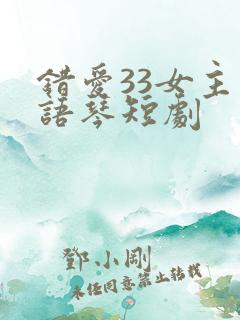 錯愛33女主
語琴短劇
鄧小剛
未經同意禁止轉載